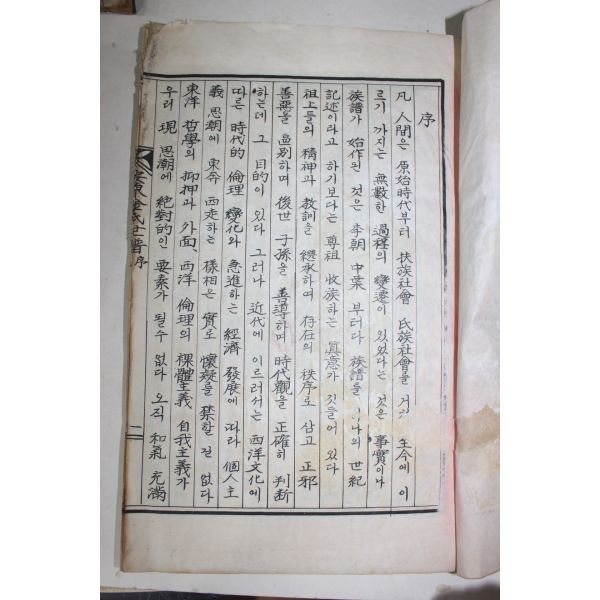 序
凡 人間은 原始時代부터 扶族社會 氏族社會을 거 至今에 이
르기 까지는 無數한 過程의 變遷이 있었다는 것은 事實이나
族譜가 始作된 것은 李朝 中葉 부터다 族譜를 나의 世紀
記述이라고 하기보다는 尊祖 收族하는 眞意가 깃들어 있다
祖上들의 精神과 敎訓을 繼承하며 存在의 秩序로 삼고 正邪
善惡을 區別하며 後世 子孫을 善導하며 時代觀을 正確히 判断
하는데 그 目的이 있다 그러나 近代에 이르러서는 西洋文化에
따른 時代的 倫理 變化와 急進하는 經濟 發展에 따라 個人主
義 思潮에 東奔 西走하는 樣相은 實로 懷疑를 禁할 길 없다
東洋 哲學의 抑押과 外面 西洋 倫理의 裸體主義 自我主義가
우리 現 思潮에 絶對的인 要素가 될수 없다 오직 和氣 充滿
金氏世譜序 一